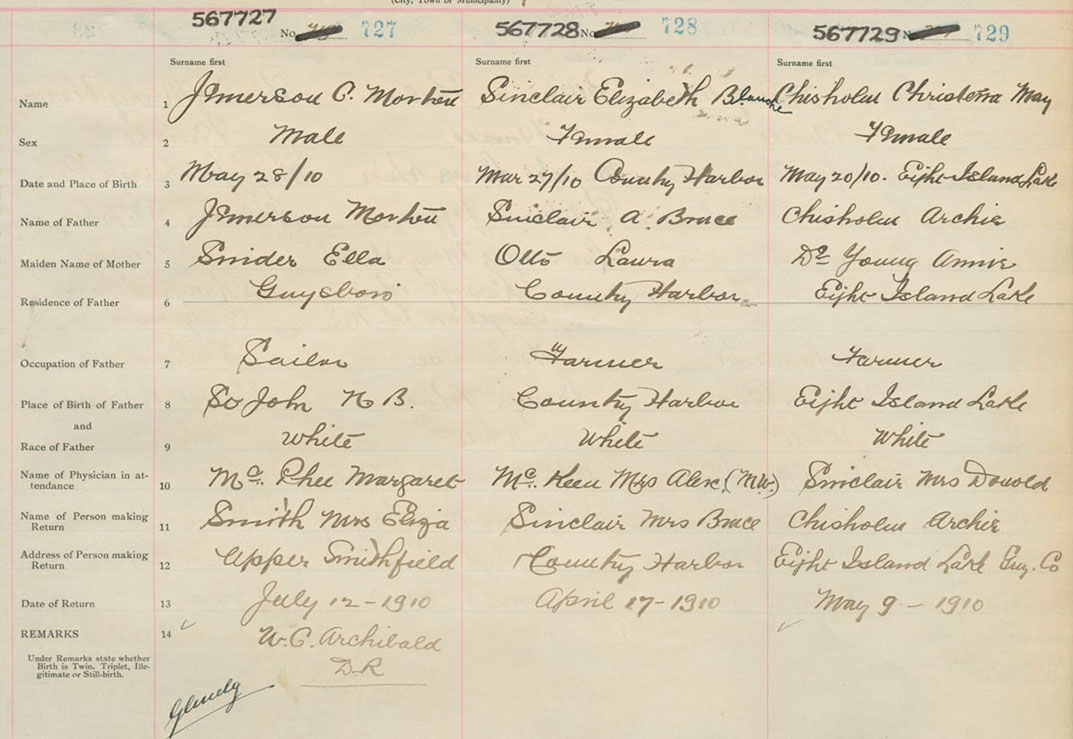 (City, Town or Municipality)
567727 No 727 567728 No 728 567729 N 729
Surname first Surname first Surname first
Name 1 Jemerson C. Morton Sinclair Elizabeth Blanche Chisholm Christena May
Sex 2 Male Female Female
Date and Place of Birth 3 May 28/10 Mar 27/10 Country Harbor May 20/10. Eight Island Lake
Name of Father 4 Jemerson Morton Sinclair A. Bruce Chisholm Archie
Maiden Name of Mother 5 Snider Ella Otto Laura De Young Annie
Residence of Father 6 Guysboro Country Harbor Eight Island Lake
Occupation of Father 7 Sailor Farmer Farmer
Place of Birth of Father 8 St John N B. Country Harbor Eight Island Lake
and
Race of Father 9 White White White
Name of Physician in at-
tendance 10 Mc. Phee Margaret Mc. Keen Mrs Alex (M.W.) Sinclair Mrs Donald
Name of Person making
Return 11 Smith Mrs Eliza Sinclair Mrs Bruce Chisholm Archie
Address of Person making
Return 12 Upper Smithfield Country Harbor Eight Island Lake Guy. Co
Date of Return 13 July 12 - 1910 April 17 - 1910 May 9 - 1910
REMARKS 14 W. C. Archibald
D.R
Under Remarks state whether
Birth is Twin, Triplet, Ille-
gitimate or Still-birth.
Glenelg